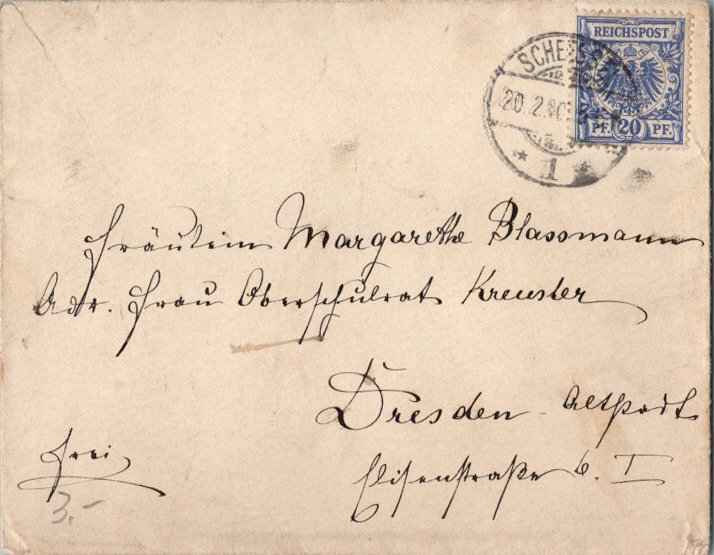 REICHSPOST
PF. 20 PF.
20.2.
* 1 *
Fräulein Margarethe Blassmann
Adr. Frau Oberschulrat Kreusler
Dresden - Altstadt
Elisenstraße 6. I
frei
3.-